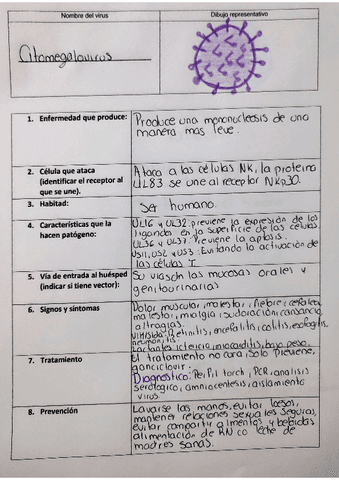 Nombre del virus
Dibujo representativo
Citomegalovirus
1. Enfermedad que produce:
Produce una mononucleosis de una
manera mas leve.
2. Célula que ataca
(identificar el receptor al
que se une).
Ataca a las células NK, la proteína
UL83 se une al receptor NKp30.
3. Habitad:
Ser humano.
4. Características que la
hacen patógeno:
UL16 y UL32: previene la expresión de los
ligandos en la superficie de las células.
UL36 y UL37: Previene la
US11, US2 y US3: Evitando la activación de
las células T
5. Vía de entrada al huésped
(indicar si tiene vector):
Su vía son las mucosas orales y
genitourinarias
6. Signos y síntomas
Dolor muscular, malestar, fiebre, cefalea,
malestar, mialgia, sudoración, cansancio,
artragias.
Retinitis, encefalitis, colitis, esofagitis,
neumonitis.
Lactantes: ictericia, miocarditis, bajo peso.
7. Tratamiento
El tratamiento no cura, solo previene,
ganciclovir.
Diagnostico: Perfil torch, PCR, analisis
serologico, amniocentesis, aislamiento
virus
8. Prevención
Lavarse las manos, evitar besos,
mantener relaciones sexuales seguras,
evitar compartir alimentos y bebidas
alimentación de RN co leche de
madres sanas.